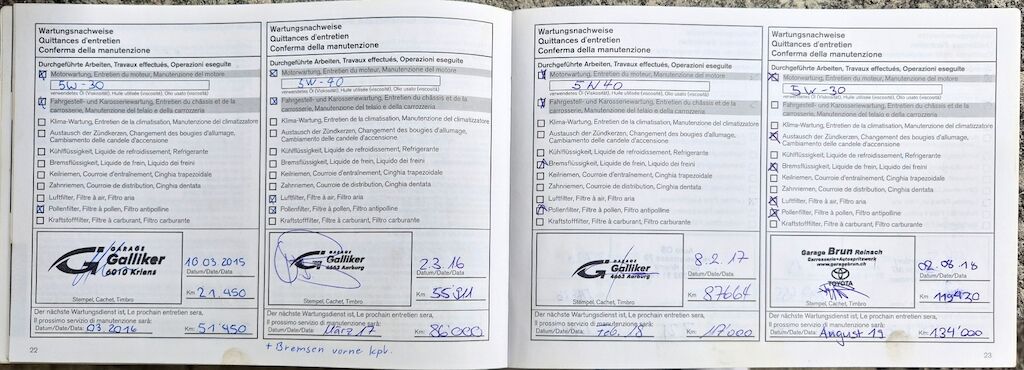 Wartungsnachweise
Quittances d'entretien
Conferma della manutenzione
Durchgeführte Arbeiten, Travaux effectués, Operazioni eseguite
Motorwartung, Entretien du moteur, Manutenzione del motore
5W-30
verwendetes Öl (Viskosität), Huile utilisée (viscosité), Olio usato (viscosità)
Fahrgestell- und Karosseriewartung, Entretien du châssis et de la
carrosserie, Manutenzione del telaio e della carrozzeria
Klima-Wartung, Entretien de la climatisation, Manutenzione del climatizzatore
Austausch der Zündkerzen, Changement des bougies d'allumage,
Cambiamento delle candele d'accensione
Kühlflüssigkeit, Liquide de refroidissement, Refrigerante
Bremsflüssigkeit, Liquide de frein, Liquido dei freini
Keilriemen, Courroie d'entraînement, Cinghia trapezoidale
Zahnriemen, Courroie de distribution, Cinghia dentata
Luftfilter, Filtre à air, Filtro aria
Pollenfilter, Filtre à pollen, Filtro antipolline
Kraftstofffilter, Filtre à carburant, Filtro carburante
GARAGE
Galliker
6010 Kriens
10 03 2015
Datum/Date/Data
Km 21.450
Stempel, Cachet, Timbro
Der nächste Wartungsdienst ist, Le prochain entretien sera,
Il prossimo servizio di manutenzione sarà:
Datum/Date/Data: 03.2016 Km: 51'450
22
Wartungsnachweise
Quittances d'entretien
Conferma della manutenzione
Durchgeführte Arbeiten, Travaux effectués, Operazioni eseguite
Motorwartung, Entretien du moteur, Manutenzione del motore
5W-40
verwendetes Öl (Viskosität), Huile utilisée (viscosité), Olio usato (viscosità)
Fahrgestell- und Karosseriewartung, Entretien du châssis et de la
carrosserie, Manutenzione del telaio e della carrozzeria
Klima-Wartung, Entretien de la climatisation, Manutenzione del climatizzatore
Austausch der Zündkerzen, Changement des bougies d'allumage,
Cambiamento delle candele d'accensione
Kühlflüssigkeit, Liquide de refroidissement, Refrigerante
Bremsflüssigkeit, Liquide de frein, Liquido dei freini
Keilriemen, Courroie d'entraînement, Cinghia trapezoidale
Zahnriemen, Courroie de distribution, Cinghia dentata
Luftfilter, Filtre à air, Filtro aria
Pollenfilter, Filtre à pollen, Filtro antipolline
Kraftstofffilter, Filtre à carburant, Filtro carburante
GARAGE
Galliker
4663 Aarburg
2.3.16
Datum/Date/Data
Km
Stempel, Cachet, Timbro
Der nächste Wartungsdienst ist, Le prochain entretien sera,
Il prossimo servizio di manutenzione sarà:
Datum/Date/Data: März 17 Km: 86000
+ Bremsen vorne kpl.
Wartungsnachweise
Quittances d'entretien
Conferma della manutenzione
Durchgeführte Arbeiten, Travaux effectués, Operazioni eseguite
Motorwartung, Entretien du moteur, Manutenzione del motore
5W40
verwendetes Öl (Viskosität), Huile utilisée (viscosité), Olio usato (viscosità)
Fahrgestell- und Karosseriewartung, Entretien du châssis et de la
carrosserie, Manutenzione del telaio e della carrozzeria
Klima-Wartung, Entretien de la climatisation, Manutenzione del climatizzatore
Austausch der Zündkerzen, Changement des bougies d'allumage,
Cambiamento delle candele d'accensione
Kühlflüssigkeit, Liquide de refroidissement, Refrigerante
Bremsflüssigkeit, Liquide de frein, Liquido dei freini
Keilriemen, Courroie d'entraînement, Cinghia trapezoidale
Zahnriemen, Courroie de distribution, Cinghia dentata
Luftfilter, Filtre à air, Filtro aria
Pollenfilter, Filtre à pollen, Filtro antipolline
Kraftstofffilter, Filtre à carburant, Filtro carburante
GARAGE
Galliker
4663 Aarburg
8.2.17
Datum/Date/Data
Km 87664
Stempel, Cachet, Timbro
Der nächste Wartungsdienst ist, Le prochain entretien sera,
Il prossimo servizio di manutenzione sarà:
Datum/Date/Data: Feb. 18 Km:
Wartungsnachweise
Quittances d'entretien
Conferma della manutenzione
Durchgeführte Arbeiten, Travaux effectués, Operazioni eseguite
Motorwartung, Entretien du moteur, Manutenzione del motore
5W-30
verwendetes Öl (Viskosität), Huile utilisée (viscosité), Olio usato (viscosità)
Fahrgestell- und Karosseriewartung, Entretien du châssis et de la
carrosserie, Manutenzione del telaio e della carrozzeria
Klima-Wartung, Entretien de la climatisation, Manutenzione del climatizzatore
Austausch der Zündkerzen, Changement des bougies d'allumage,
Cambiamento delle candele d'accensione
Kühlflüssigkeit, Liquide de refroidissement, Refrigerante
Bremsflüssigkeit, Liquide de frein, Liquido dei freini
Keilriemen, Courroie d'entraînement, Cinghia trapezoidale
Zahnriemen, Courroie de distribution, Cinghia dentata
Luftfilter, Filtre à air, Filtro aria
Pollenfilter, Filtre à pollen, Filtro antipolline
Kraftstofffilter, Filtre à carburant, Filtro carburante
Garage Brun Reinach
Carrosserie+Autospritzwerk
www.garagebrun.ch
TOYOTA
02.08.18
Datum/Date/Data
Km 119420
Stempel, Cachet, Timbro
Der nächste Wartungsdienst ist, Le prochain entretien sera,
Il prossimo servizio di manutenzione sarà:
Datum/Date/Data: August 19 Km: 134'000
23